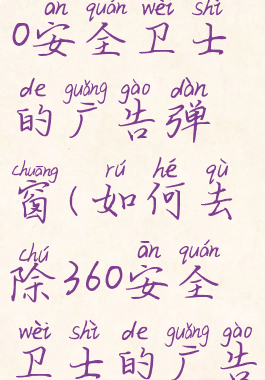 ān quán wèi shì
0安全卫士
de guǎng gào dàn
的广告弹
chuāng rú hé qù
窗（如何去
chú ān quán
除360安全
wèi shì de guǎng gào
卫士的广告